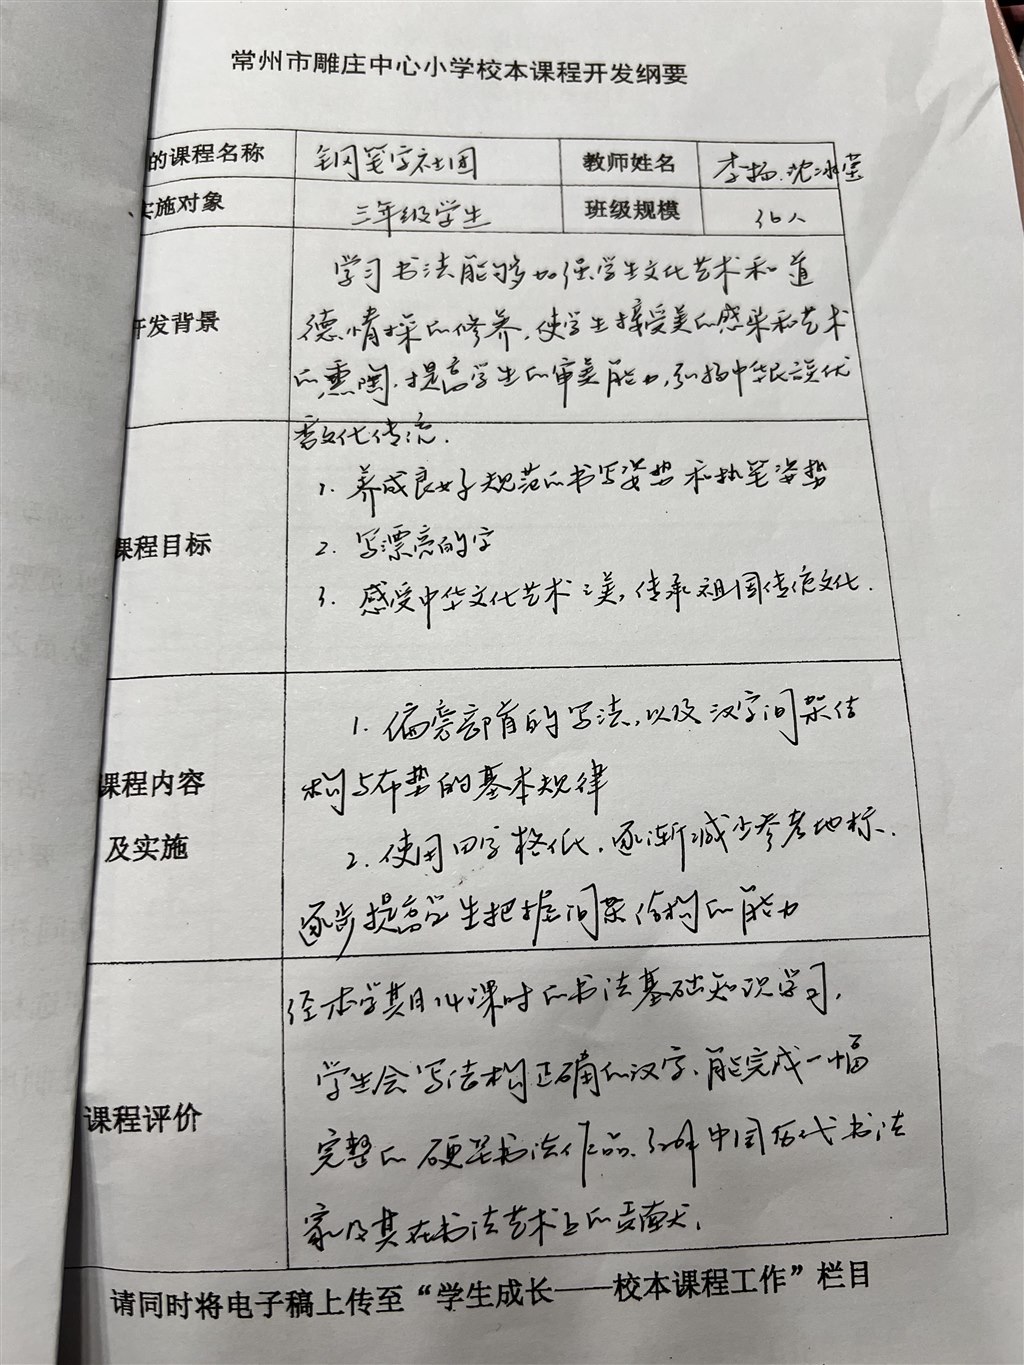 常州市雕庄中心小学校本课程开发纲要
的课程名称 钢笔字社团 教师姓名 李扬、沈冰莹
实施对象 三年级学生 班级规模 36人
开发背景
学习书法能够加强学生文化艺术和道
德情操的修养,使学生接受美的感染和艺术
的熏陶,提高学生的审美能力,弘扬中华民族优
秀文化传统.
课程目标
1. 养成良好规范的书写姿势和执笔姿势
2. 写漂亮的字
3. 感受中华文化艺术之美,传承祖国传统文化.
课程内容
及实施
1. 偏旁部首的写法,以及汉字间架结
构与布势的基本规律
2. 使用田字格纸,逐渐减少参考坐标,
逐步提高学生把握间架结构的能力
课程评价
经本学期14课时的书法基础知识学习,
学生会写结构正确的汉字,能完成一幅
完整的硬笔书法作品,了解中国历代书法
家及其在书法艺术上的贡献.
请同时将电子稿上传至“学生成长——校本课程工作”栏目